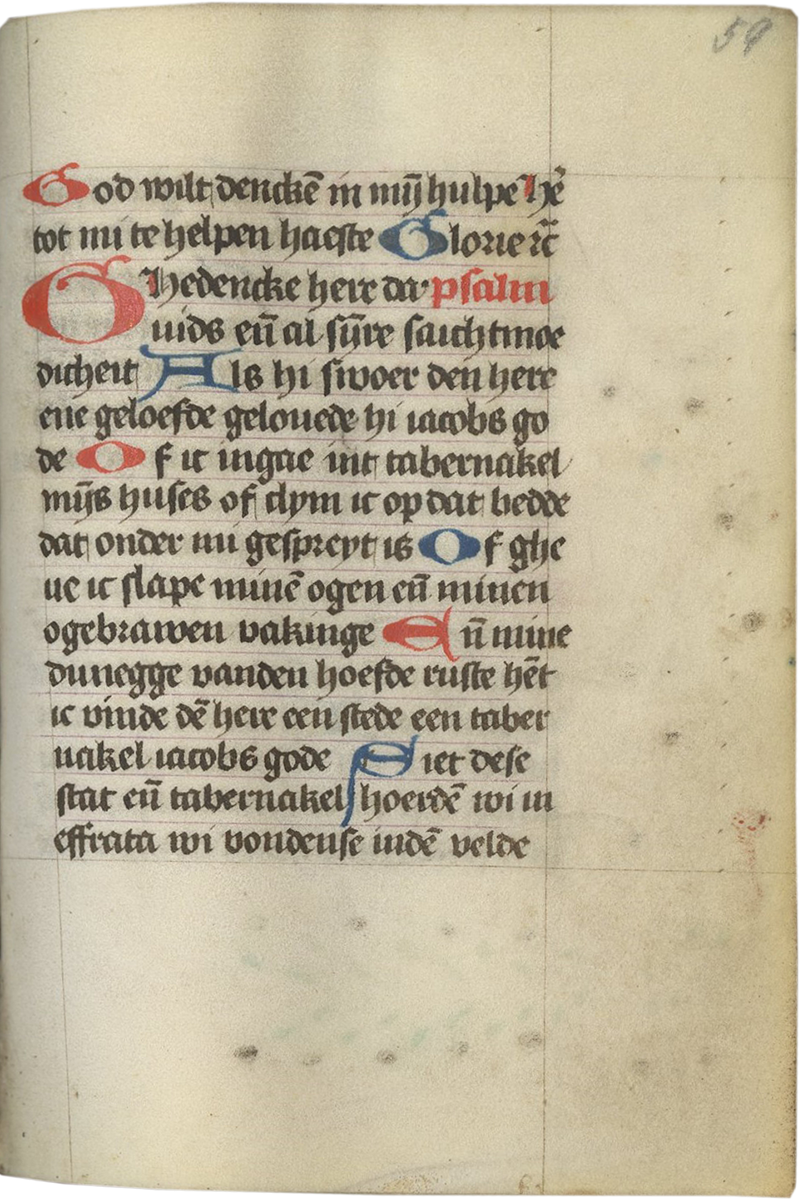 59
God wilt denckē in mijn hulpe hē
tot mi te helpen haeste Glorie ꝛc̄
Ghedencke here da psalm
uids eñ al sijnre saichtmoe
dicheit Als hi swoer den here
ene geloefde gelouede hi iacobs go
de Of ic ingae int tabernakel
mijs huses of clym ic op dat bedde
dat onder mi gespreyt is Of ghe
ue ic slape minē ogen eñ minen
ogebrawen vakinge Eñ mine
dunegge vanden hoefde ruste hēt
ic vinde dē here een stede een taber
nakel iacobs gode Siet dese
stat eñ tabernakel hoerdē wi in
effrata wi vondense indē velde